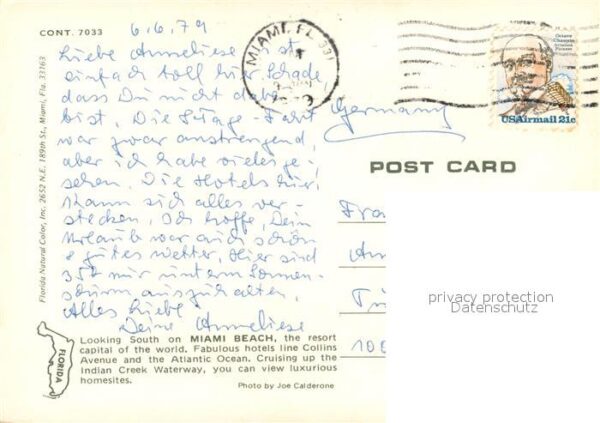 CONT. 7033
6.6.79
Liebe Anneliese, es ist
einfach toll hier. Schade,
dass Du nicht dabei
bist. Die Fahrt
war zwar anstrengend,
aber ich habe vieles ge-
sehen. Die Hotels hier,
kann sich alles ver-
stecken. Ich hoffe, Dein
Urlaub war auch schön
& gutes Wetter. Hier sind
35° nur unterm Sonnen-
schirm auszuhalten.
Alles Liebe
Deine Anneliese
Germany
MIAMI, FL 331
Octave Chanute
Aviation Pioneer
USAirmail 21c
POST CARD
Fra
An
100
privacy protection
Datenschutz
Florida Natural Color, Inc. 2652 N.E. 189th St., Miami, Fla. 33163
FLORIDA
Looking South on MIAMI BEACH, the resort
capital of the world. Fabulous hotels line Collins
Avenue and the Atlantic Ocean. Cruising up the
Indian Creek Waterway, you can view luxurious
homesites.
Photo by Joe Calderone